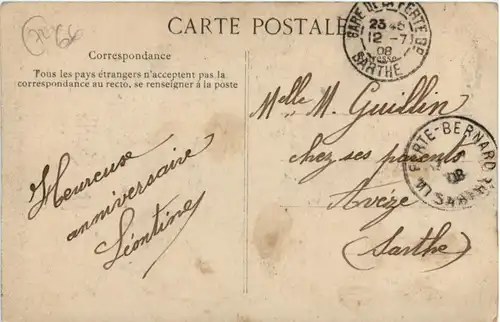 CARTE POSTALE
Correspondance
Tous les pays étrangers n'acceptent pas la
correspondance au recto, se renseigner à la poste
Heureux
anniversaire
Léontine
Melle M. Guillin
chez ses parents
Avezé
(Sarthe)
GARE DE LA FERTE-BD
23 45
12 -7
08
SARTHE
LA FERTE-BERNARD
08
SARTHE
66